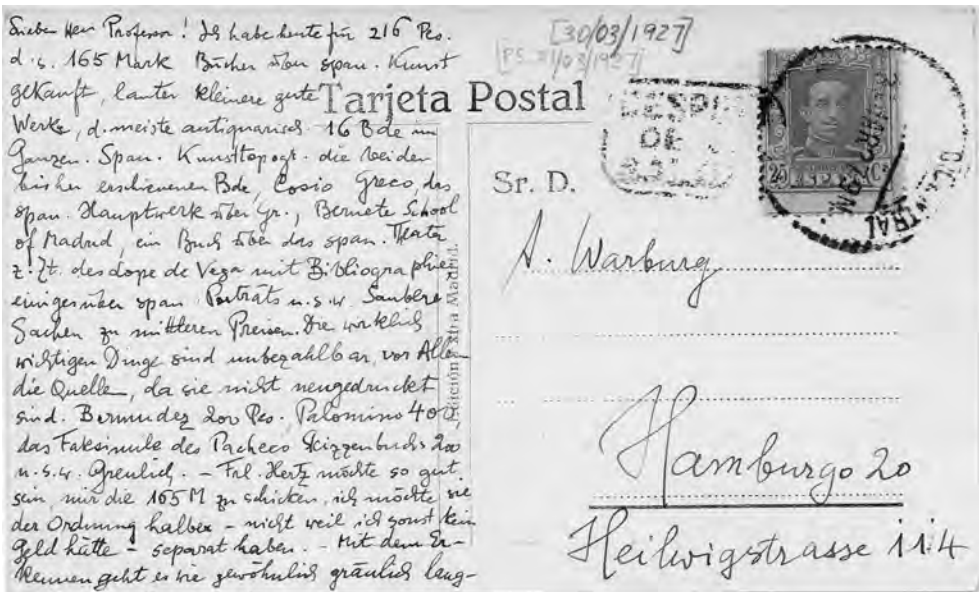 Lieber Herr Professor! Ich habe heute für 216 Pes.
d. s. 165 Mark Bücher über span. Kunst
gekauft, lauter kleinere gute
Werke, d. meiste antiquarisch. 16 Bde im
Ganzen. Span. Kunsttopogr. die beiden
bisher erschienenen Bde, Cosio Greco, das
span. Hauptwerk über Gr., Beruete School
of Madrid, ein Buch über das span. Theater
z. Zt. des Lope de Vega mit Bibliographie,
einiges über span. Porträts u.s.w. Saubere
Sachen zu mittleren Preisen. Die wirklich
wichtigen Dinge sind unbezahlbar, vor Allem
die Quellen, da sie nicht neugedruckt
sind. Bermudez 200 Pes. Palomino 400,
das Faksimile des Pacheco Skizzenbuchs 200
u.s.w. Greulich. – Frl. Hertz möchte so gut
sein, mir die 165 M zu schicken, ich möchte sie
der Ordnung halber – nicht weil ich sonst kein
Geld hätte – separat haben. – Mit dem Er-
kennen geht es wie gewöhnlich gräulich lang-
[30/03/1927]
[PS 31/03/1927]
Tarjeta Postal
Edición Extra Madrid.
DE
CENTRAL
ESPAÑA
Sr. D.
A. Warburg
Hamburgo 20
Heilwigstrasse 114